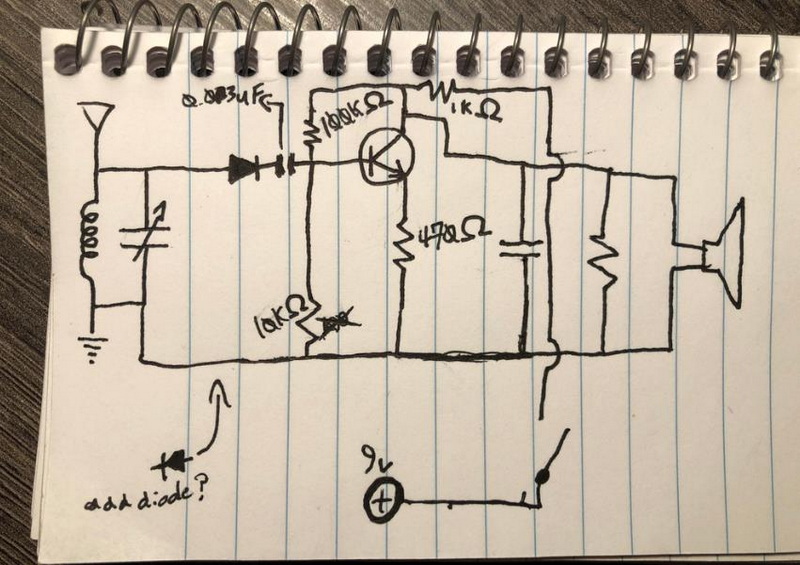 0.003uF
100KΩ
1KΩ
470Ω
10KΩ
9v
+
add diode?